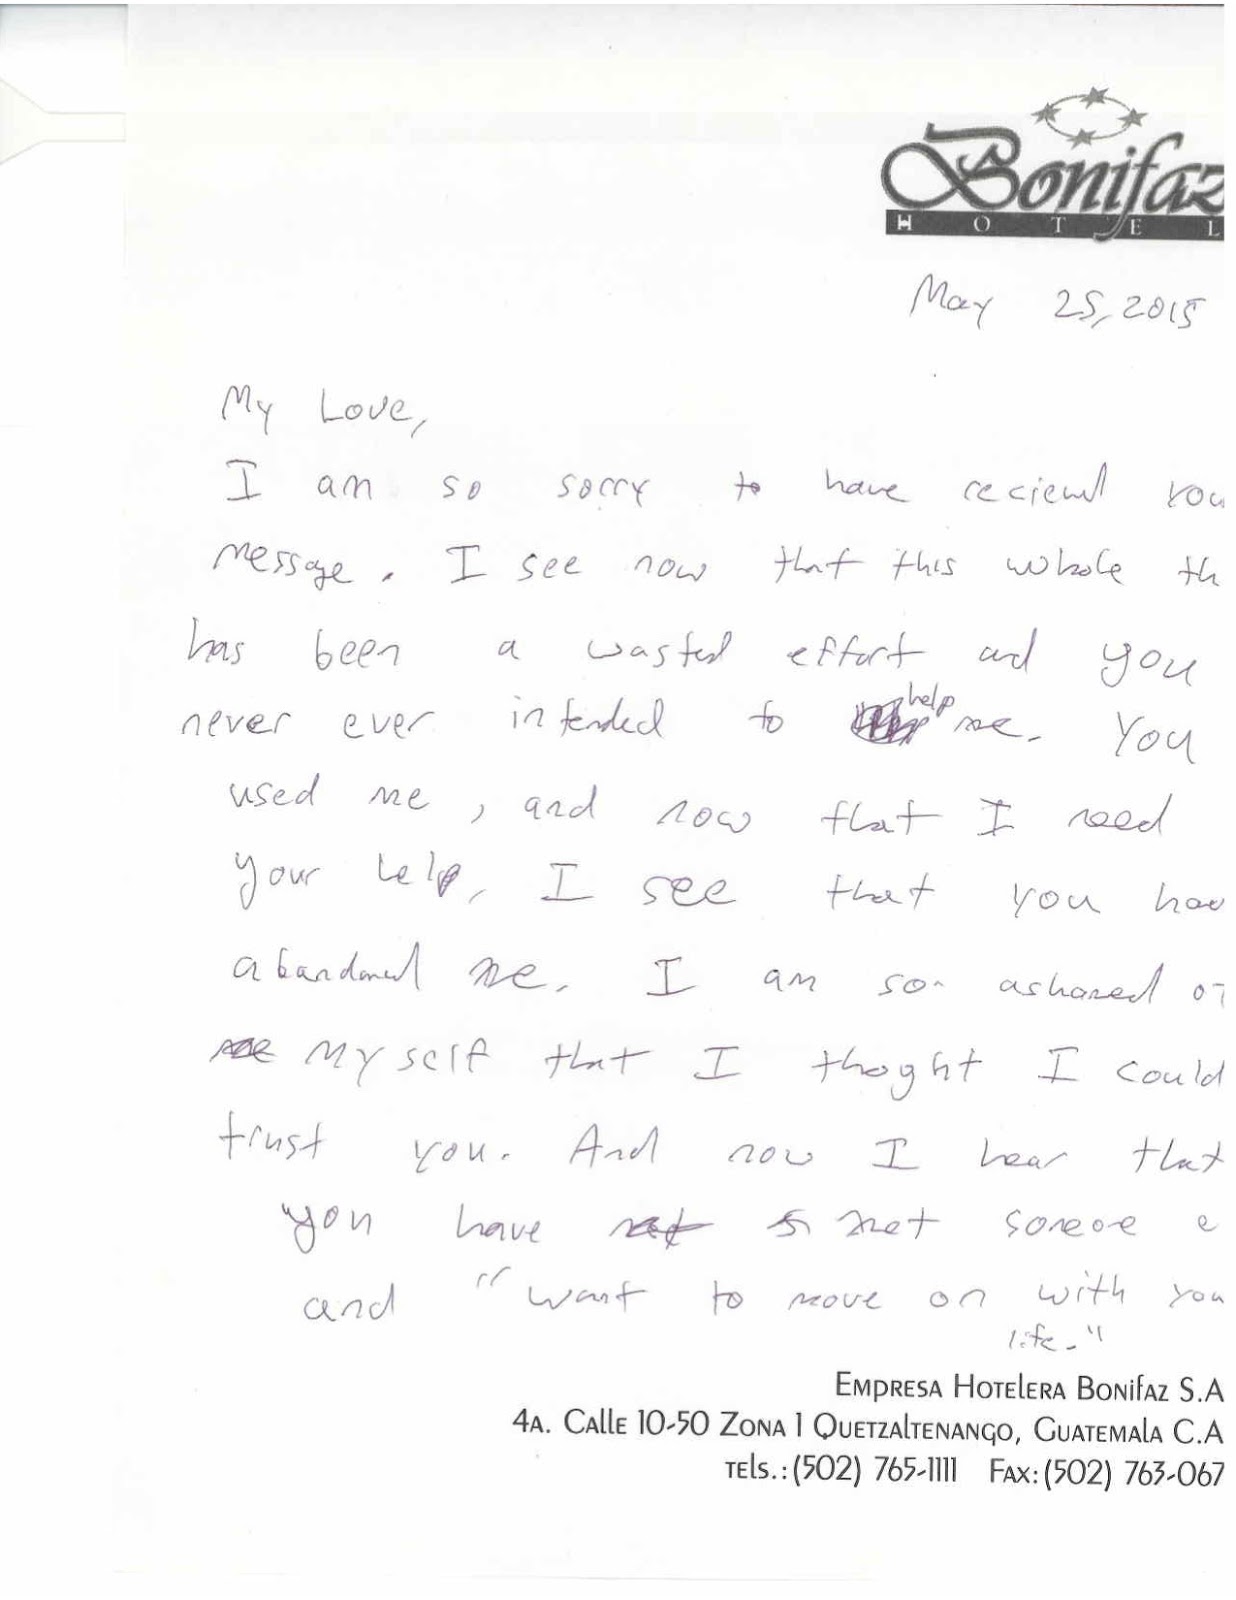 Bonifaz
HOTEL
May 25, 2015
My Love,
I am so sorry to have recieved you
message. I see now that this whole th
has been a wasted effort and you
never ever intended to help me. You
used me, and now that I need
your help, I see that you hav
abandoned me. I am so ashamed of
me myself that I thoght I could
trust you. And now I hear that
you have met someone e
and "want to move on with you
life."
EMPRESA HOTELERA BONIFAZ S.A
4A. CALLE 10-50 ZONA 1 QUETZALTENANGO, GUATEMALA C.A
TELS.: (502) 765-1111 FAX: (502) 763-067